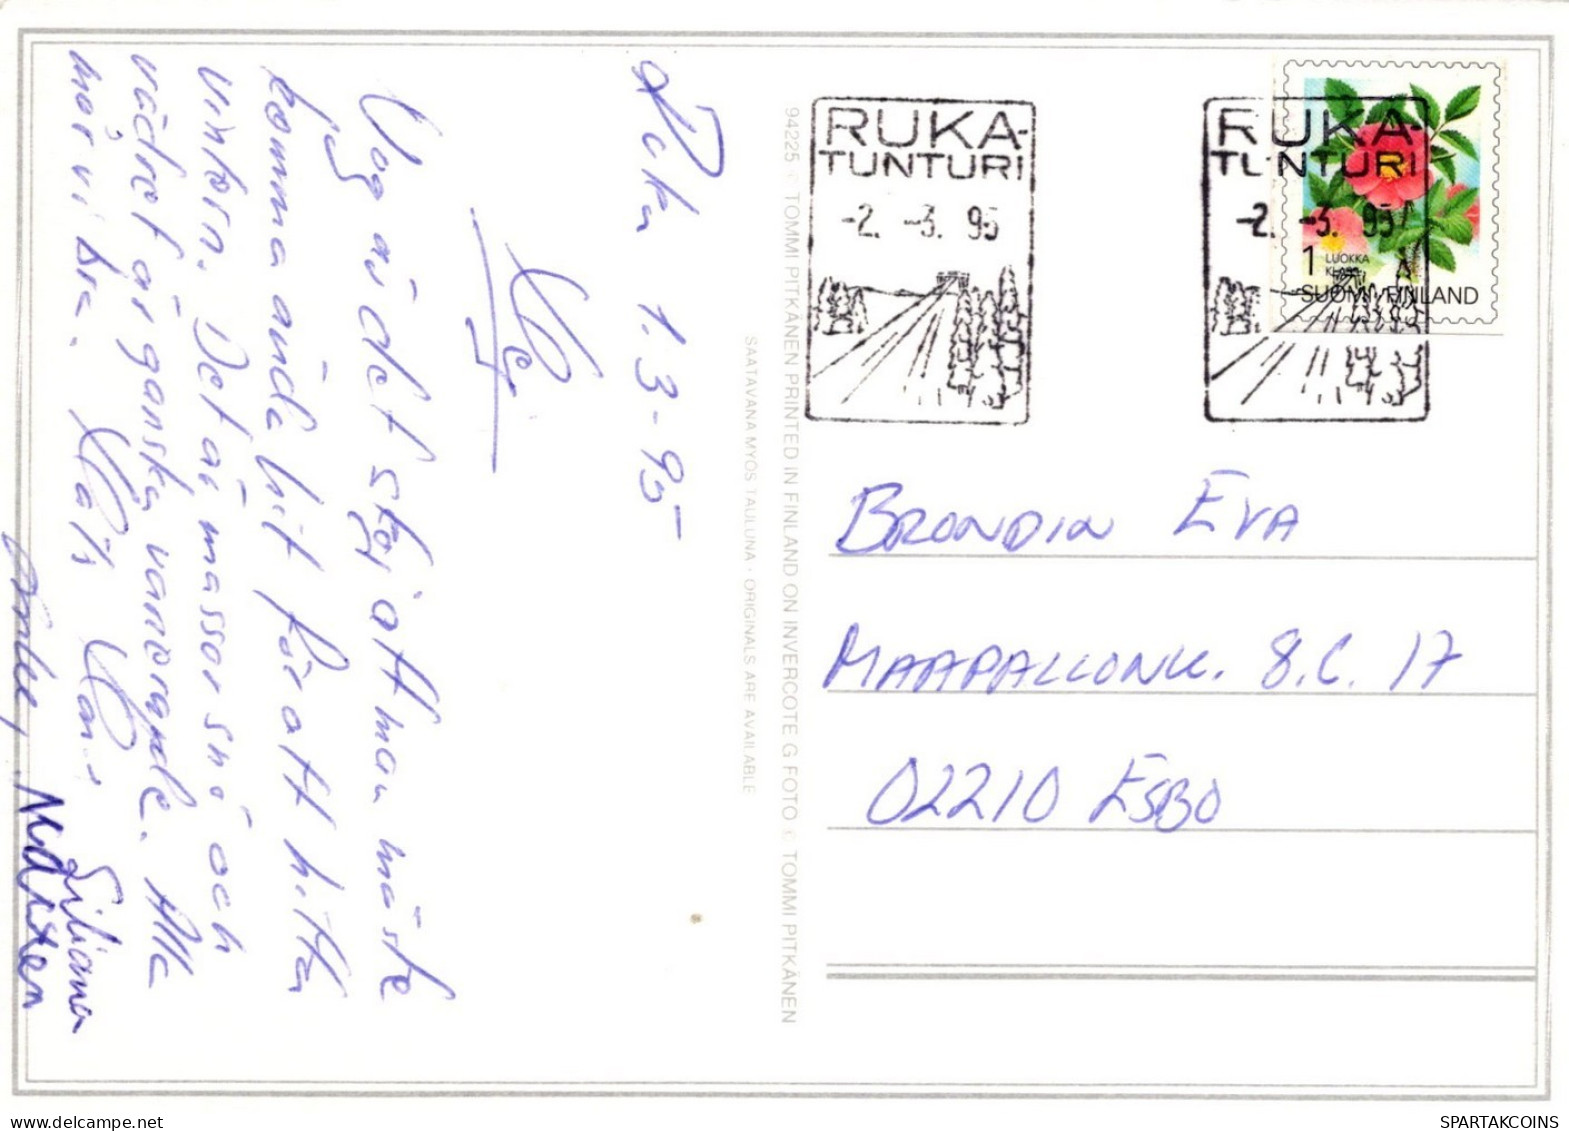 Ruka 1.3-95
Nog är det stoj att man måste
komma ände hit för att hitta
vintern. Det är massor snö och
vädret är ganska varierande. Alla
mår vi bra.
Mårten
Liliana
94225 © TOMMI PITKÄNEN PRINTED IN FINLAND ON INVERCOTE G FOTO © TOMMI PITKÄNEN
SAATAVANA MYÖS TAULUNA · ORIGINALS ARE AVAILABLE
RUKA-
TUNTURI
-2. -3. 95
RUKA-
TUNTURI
-2. -3. 95
1 LUOKKA
KLASS
SUOMI FINLAND
BRONDIN EVA
MAAPALLONK. 8.C. 17
02210 ESBO
SPARTAKCOINS
delcampe.net
SPARTAKCOINS